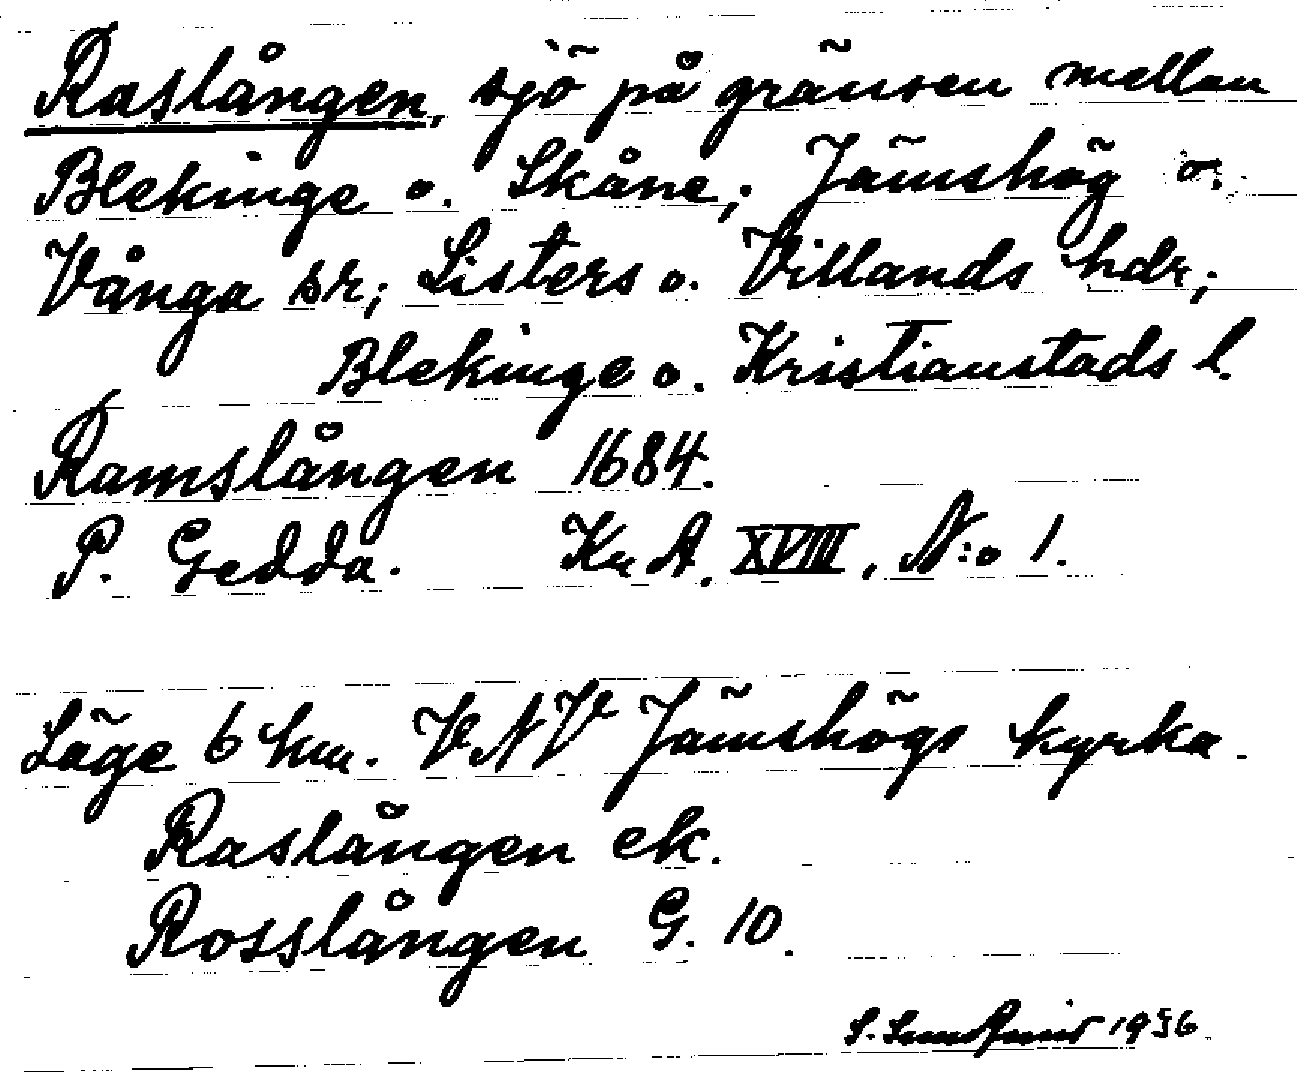 Raslången, sjö på gränsen mellan
Blekinge o. Skåne; Jämshög o.
Vånga sr; Listers o. Villands hdr;
Blekinge o. Kristianstads l.
Ramslången 1684.
P. Gedda. Kr A. XVIII, N:o 1.
Läge 6 km. VNV Jämshögs kyrka.
Raslången ek.
Rosslången G. 10.
S. 1956